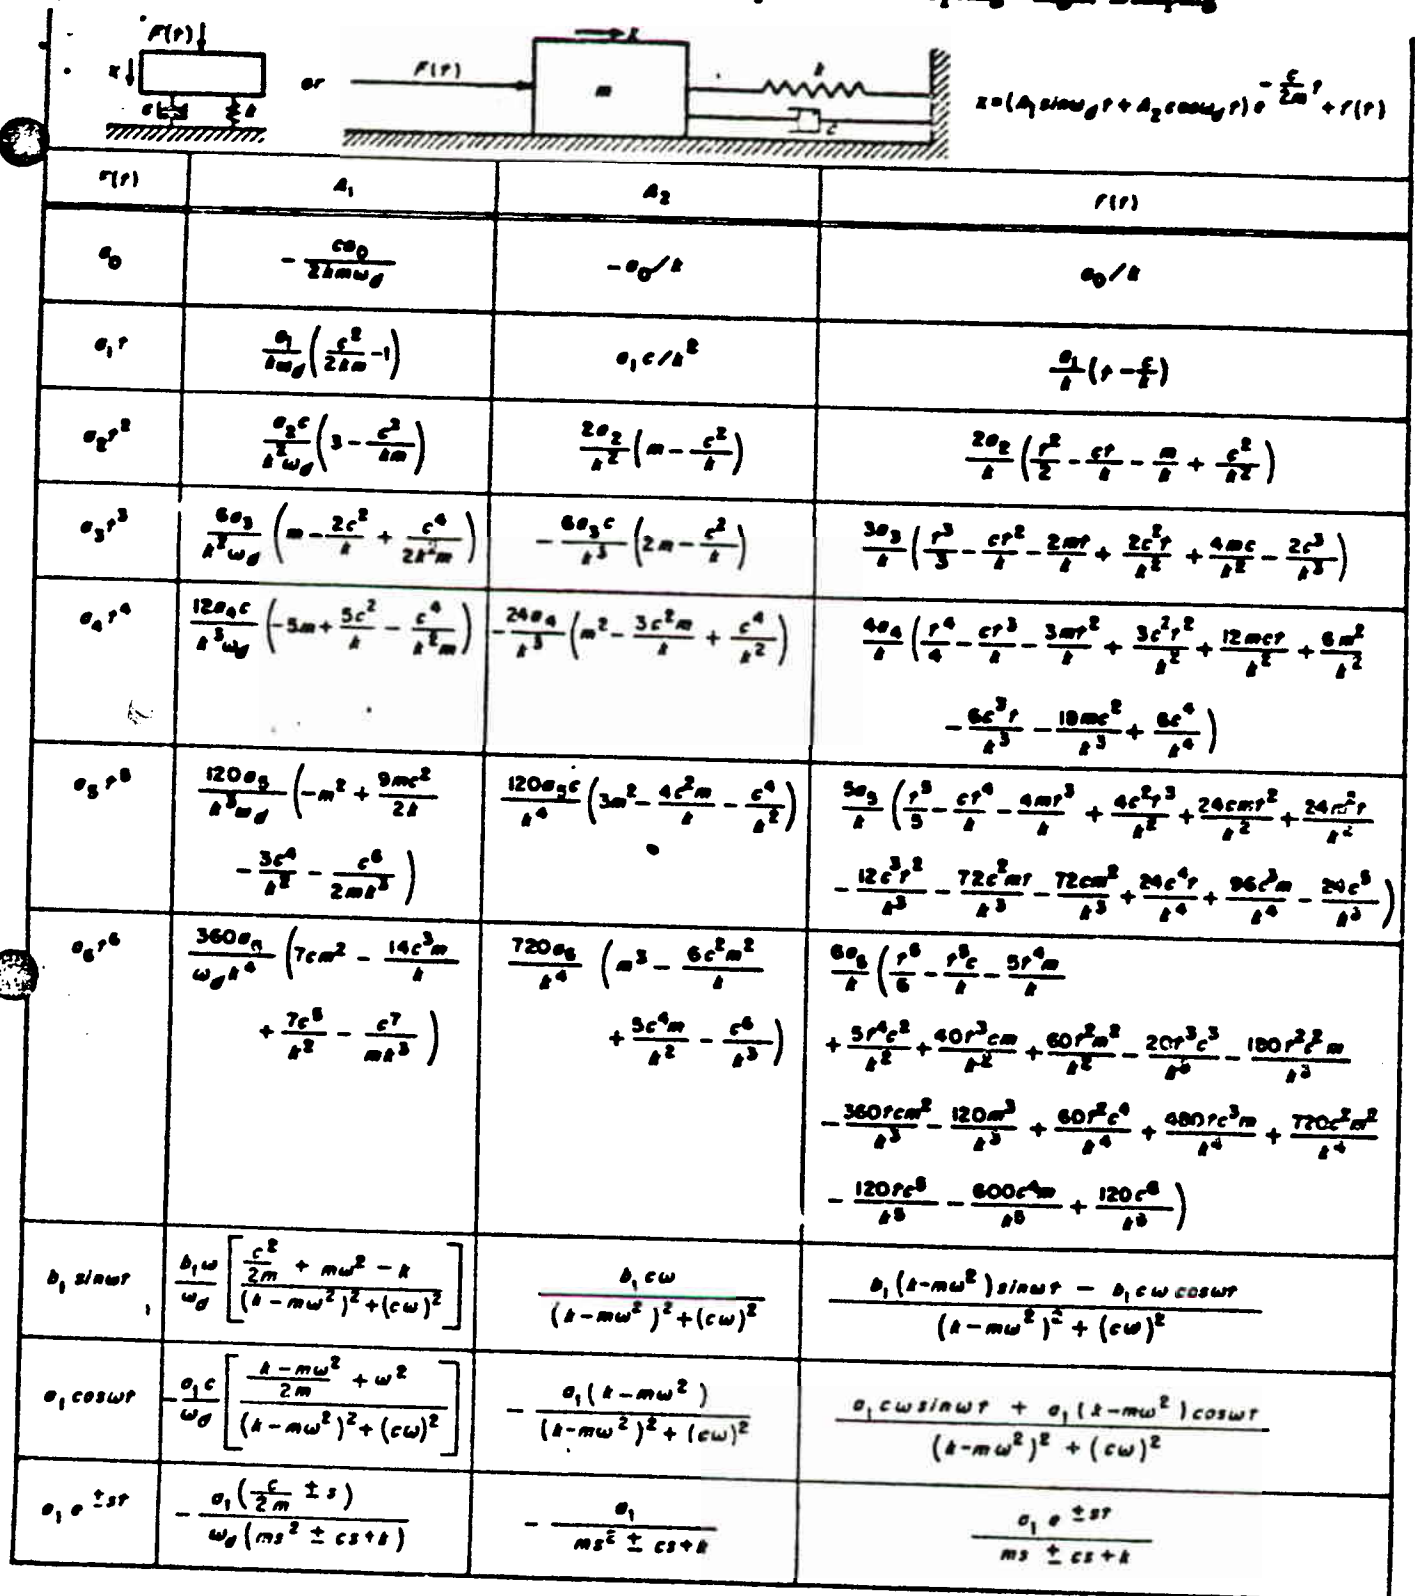 F(t)
x
c
k
or
F(t)
x
m
k
c
x=(A₁ sinω_d t + A₂ cosω_d t) e^(-(c/2m) t) + f(t)
F(t) A₁ A₂ f(t)
a₀ -ca₀/(2kmω_d) -a₀/k a₀/k
a₁t a₁/(kω_d) (c²/(2km) -1) a₁c/k² a₁/k (t - c/k)
a₂t² a₂c/(k²ω_d) (3 - c²/(km)) 2a₂/k² (m - c²/k) 2a₂/k (t²/2 - ct/k - m/k + c²/k²)
a₃t³ 6a₃/(k²ω_d) (m - 2c²/k + c⁴/(2k²m)) -6a₃c/k³ (2m - c²/k) 3a₃/k (t³/3 - ct²/k - 2mt/k + 2c²t/k² + 4mc/k² - 2c³/k³)
a₄t⁴ 12a₄c/(k³ω_d) (-5m + 5c²/k - c⁴/(k²m)) -24a₄/k³ (m² - 3c²m/k + c⁴/k²) 4a₄/k (t⁴/4 - ct³/k - 3mt²/k + 3c²t²/k² + 12mct/k² + 6m²/k²
- 6c³t/k³ - 18mc²/k³ + 6c⁴/k⁴)
a₅t⁵ 120a₅/(k³ω_d) (-m² + 9mc²/(2k) 120a₅c/k⁴ (3m² - 4c²m/k - c⁴/k²) 5a₅/k (t⁵/5 - ct⁴/k - 4mt³/k + 4c²t³/k² + 24cmt²/k² + 24m²t/k²
- 3c⁴/k² - c⁶/(2mk³)) - 12c³t²/k³ - 72c²mt/k³ - 72cm²/k³ + 24c⁴t/k⁴ + 96c³m/k⁴ - 24c⁵/k⁵)
a₆t⁶ 360a₆/(ω_d k⁴) (7cm² - 14c³m/k 720a₆/k⁴ (m³ - 6c²m²/k 6a₆/k (t⁶/6 - t⁵c/k - 5t⁴m/k
+ 7c⁵/k² - c⁷/(mk³)) + 5c⁴m/k² - c⁶/k³) + 5t⁴c²/k² + 40t³cm/k² + 60t²m²/k² - 20t³c³/k³ - 180t²c²m/k³
- 360tcm²/k³ - 120m³/k³ + 60t²c⁴/k⁴ + 480tc³m/k⁴ + 720c²m²/k⁴
- 120tc⁵/k⁵ - 600c⁴m/k⁵ + 120c⁶/k⁶)
b₁ sinωt b₁ω/ω_d [(c²/2m + mω² - k)/((k-mω²)²+(cω)²)] b₁cω/((k-mω²)²+(cω)²) (b₁(k-mω²)sinωt - b₁cω cosωt)/((k-mω²)² + (cω)²)
a₁ cosωt -a₁c/ω_d [((k-mω²)/2m + ω²)/((k-mω²)²+(cω)²)] -a₁(k-mω²)/((k-mω²)² + (cω)²) (a₁cω sinωt + a₁(k-mω²)cosωt)/((k-mω²)² + (cω)²)
a₁e^(±st) -a₁(c/2m ± s)/(ω_d(ms² ± cs+k)) -a₁/(ms² ± cs+k) a₁e^(±st)/(ms ± cs+k)